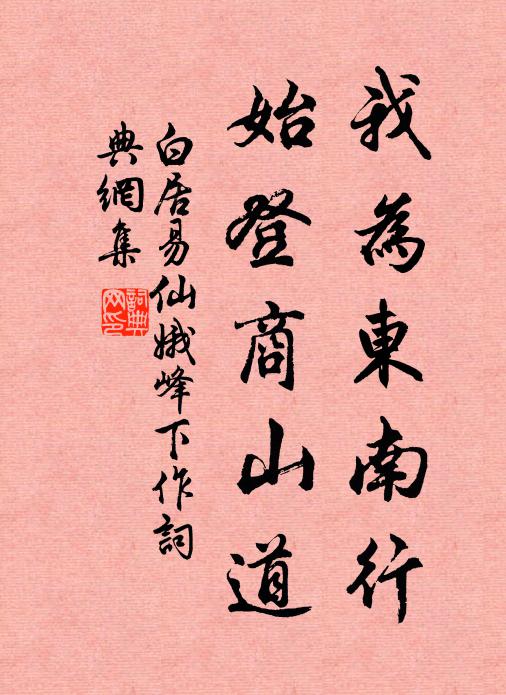 我為東南行
始登商山道
白居易仙娥峰下作詞
典網集
詞典
网印